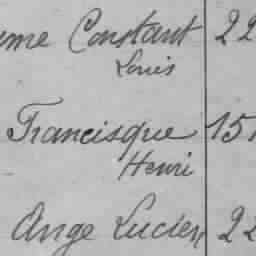 Constant 22
Louis
Francisque 15
Henri
Ange Lucien 22